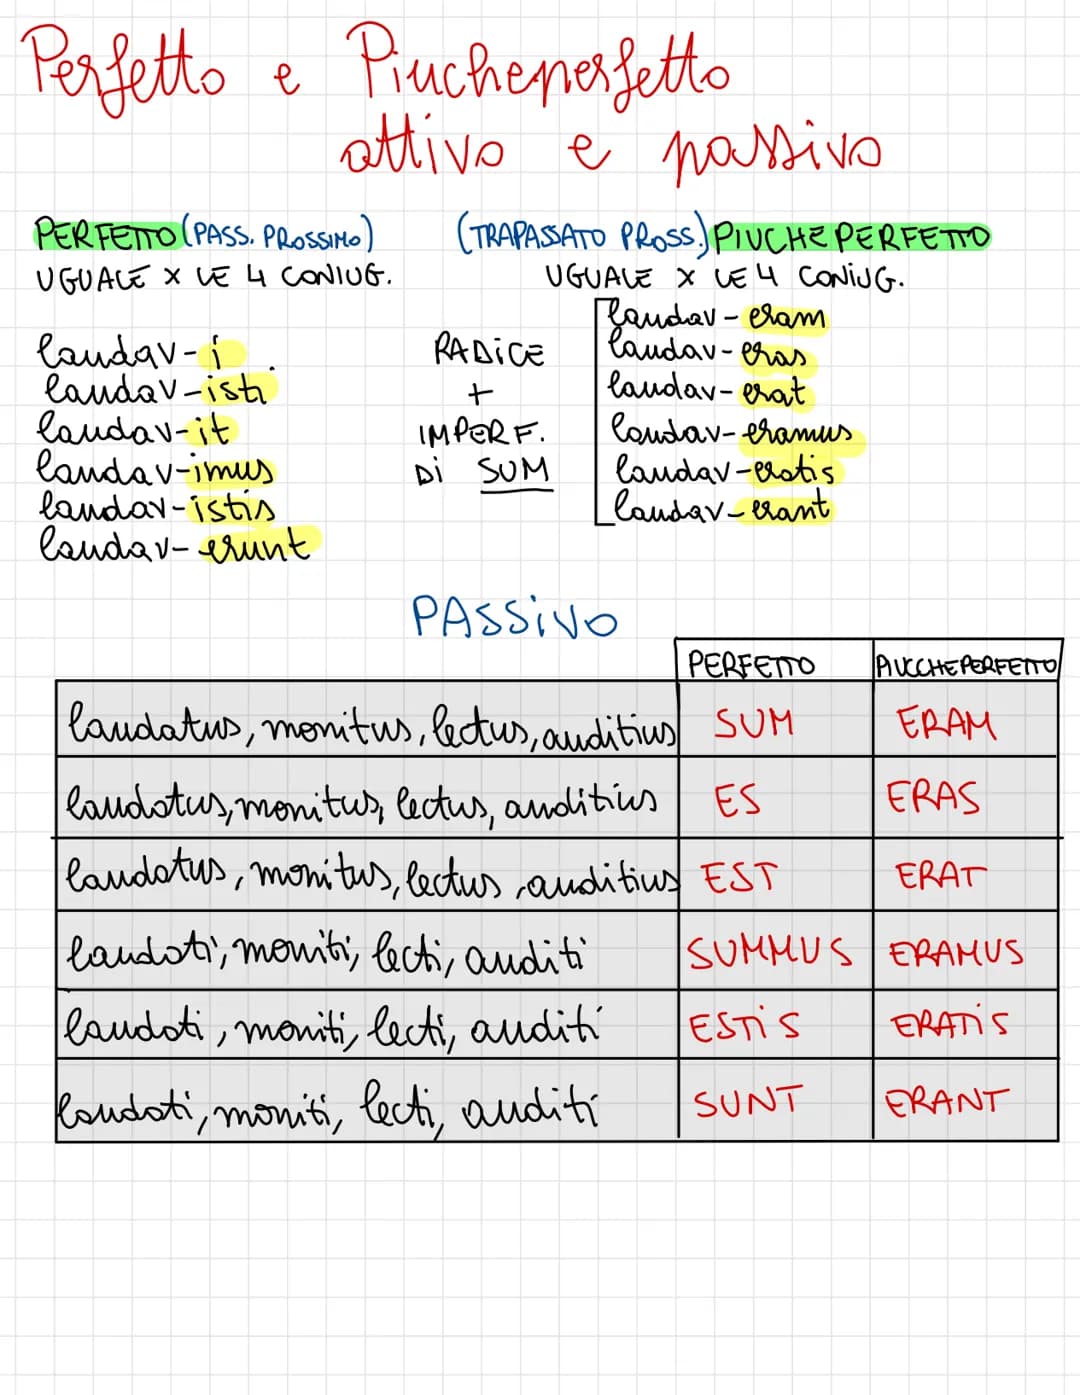 Perfetto e Piucheperfetto
attivo e passivo
PERFETTO (PASS. PROSSIMO)
UGUALE X LE 4 CONIUG.
laudav-i
laudav-isti
laudav-it
laudav-imus
laudav-istis
laudav-erunt
(TRAPASSATO PROSS.) PIUCHEPERFETTO
UGUALE X LE 4 CONIUG.
RADICE
+
IMPERF.
DI SUM
laudav-eram
laudav-eras
laudav-erat
laudav-eramus
laudav-eratis
laudav-erant
PASSIVO
PERFETTO PIUCCHEPERFETTO
laudatus, monitus, lectus, auditius SUM ERAM
laudatus, monitus, lectus, auditius ES ERAS
laudatus, monitus, lectus, auditius EST ERAT
laudati, moniti, lecti, auditi SUMMUS ERAMUS
laudati, moniti, lecti, auditi ESTIS ERATIS
laudati, moniti, lecti, auditi SUNT ERANT